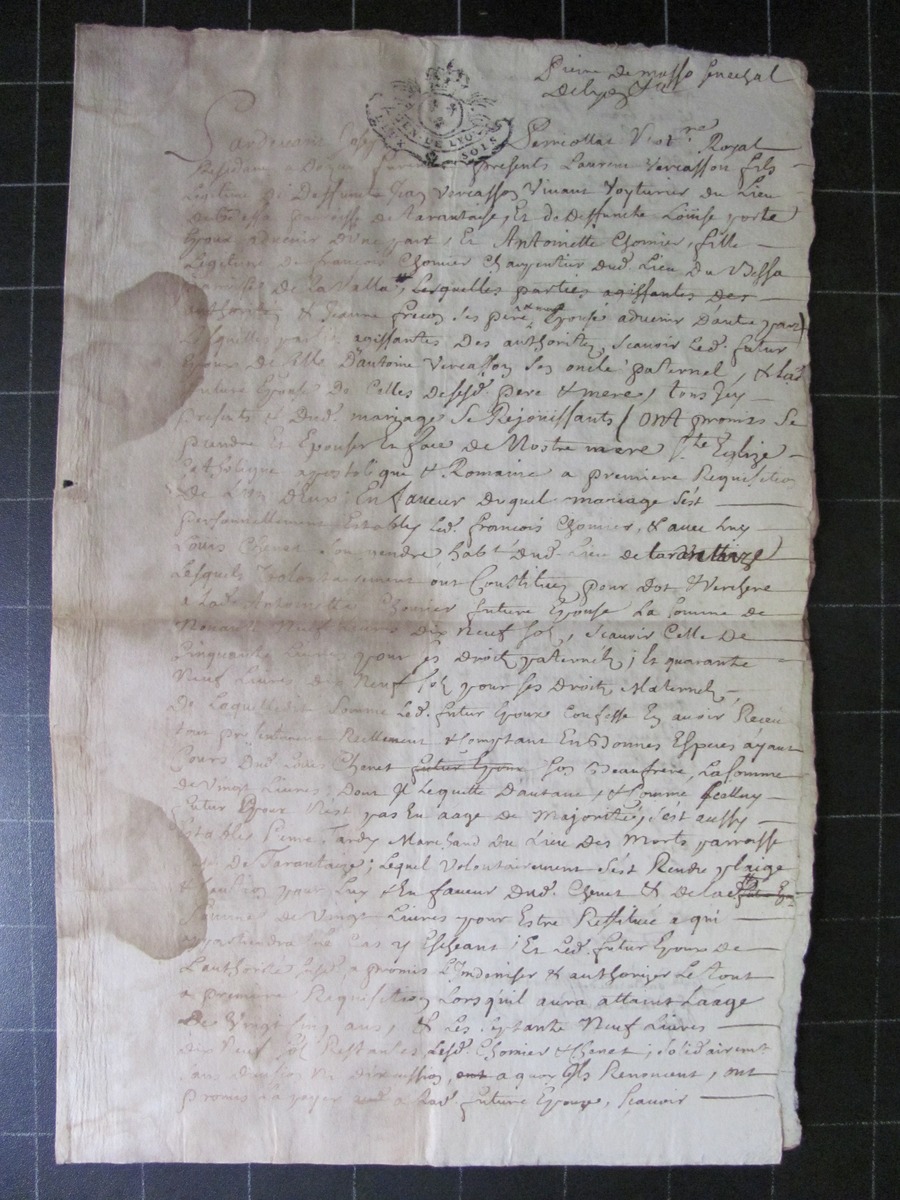 Pierre de masso Senechal
De Lyon &ca
GEN. DE LYON SOLS
Pardevant Notre Royal
Residant presents Laurent Vercasson fils
Legitime de Deffunct Jean Vercasson Vivant Voyturier du Lieu
du Bessa paroisse de Tarantaise, Et de deffuncte Loüise porte
Epoux advenir D'une part, Et Antoinette Chomier, fille
Legitime de françois Chomier Charpentier dud. Lieu Du Bessa
parroisse de La Valla, Lesquelles parties agissantes des
authorités & Jeanne ses pere Epouse advenir D'autre part
Lesquelles parties agissantes Des authorités, Scavoir Led. futur
Epoux de Celle D'antoine Vercasson Son oncle paternel, & Lad.
future Epouse De Celles desesd. pere & mere, tous Icy
presents & Dud. mariage Se Rejouissants, ont promis Se
prendre Et Epouser En face de Nostre mere Ste Eglize
Catholique apostolique & Romaine a premiere Requisition
De L'un D'eux; En faveur Duquel mariage S'est
personnellement Estably Led. françois Chomier, & avec Luy
Louis Chenet Son gendre habt. Dud. Lieu de tarantaize
Lesquels Volontairement ont Constitué pour Dot & Verchere
a Lad. Antoinette Chomier future Epouse La Somme de
Nonante Neuf Livres Dix Neuf Sols, Scavoir Celle De
Cinquante Livres pour ses Droits paternels; Et quarante
Neuf Livres dix Neuf sols pour ses Droits Maternels
De Laquelle Somme Led. futur Epoux Confesse En avoir Receu
tout presentement Reellement & Comptant En Bonnes Especes ayant
Cours Dud. Louis Chenet futur Epoux Son Beaufrere, La Somme
de Vingt Livres, Dont Il Le quitte D'autant, & Comme
futur Epoux N'est pas En aage de Majorité, s'est aussy
Estably Pierre Tardy Marchand du Lieu des Morts parroisse
De Tarantaize; lequel Volontairement s'est Rendu plaige
& Caution pour Luy & En faveur Dud. Chenet & de La
Somme de Vingt Livres pour Estre Restituée a qui
appartiendra Le Cas y Escheant; Et Led. futur Epoux de
L'authorité a promis L'Indemniser & authorizer Le tout
a premiere Requisition Lorsquil aura attaint Laage
De Vingt Cinq ans, & Les Septante Neuf Livres
dix Neuf sols Restantes Lesd. Chomier & Chenet, solidairement
sans Division Ni discussion, ont a quoy Ils Renoncent, ont
promis La payer a Lad. future Epouse, Scavoir